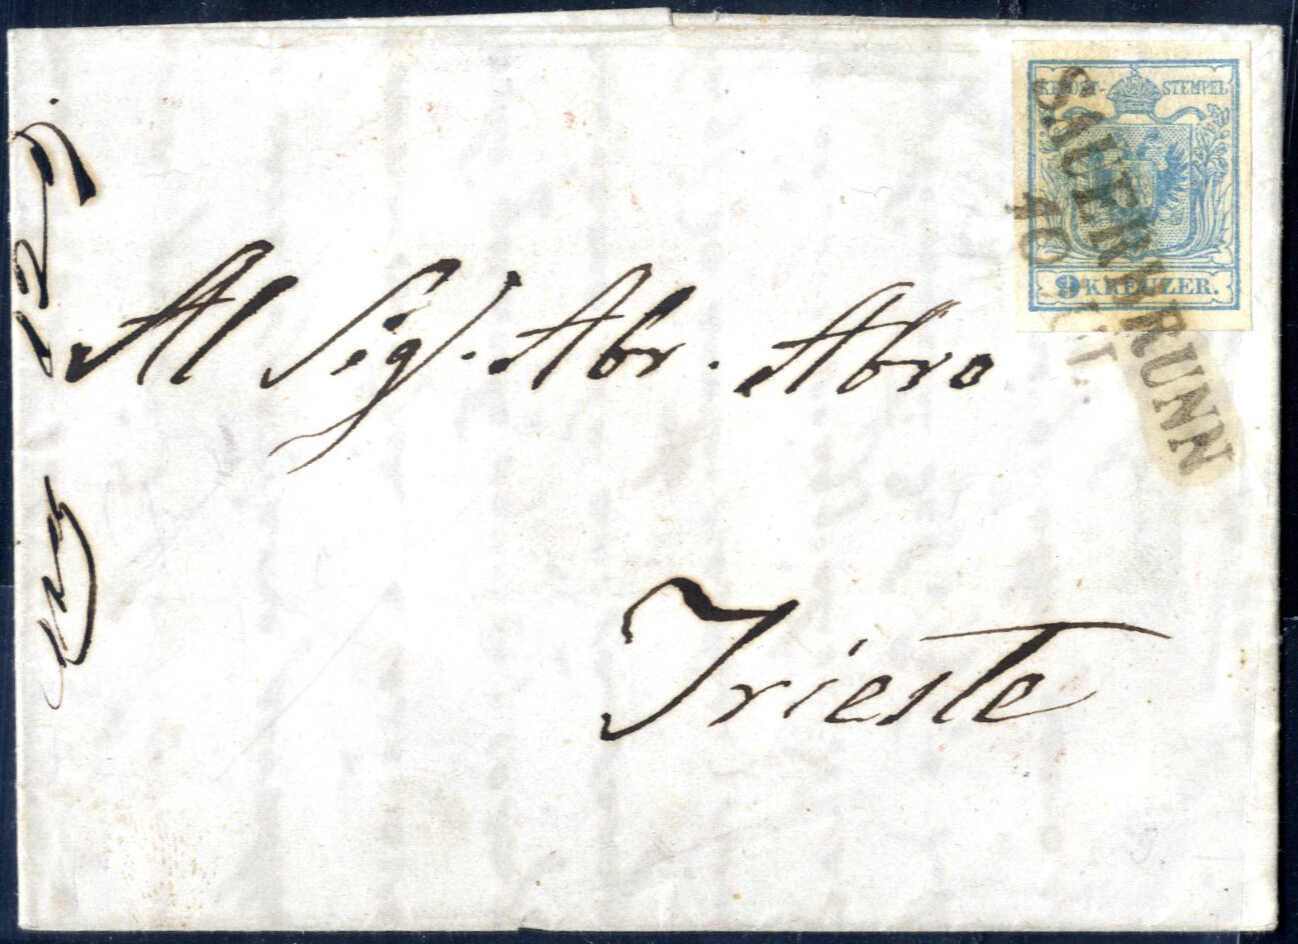 KK POST-STEMPEL
9 KREUZER.
SAUERBRUNN
10
Al Sigr. Abr. Abro
Trieste